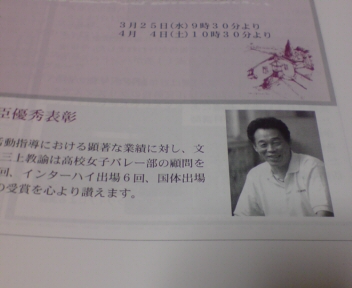 3月25日(水)9時30分より
4月 4日(土)10時30分より
臣優秀表彰
動指導における顕著な業績に対し、文
三上教諭は高校女子バレー部の顧問を
回、インターハイ出場6回、国体出場
の受賞を心より讃えます。